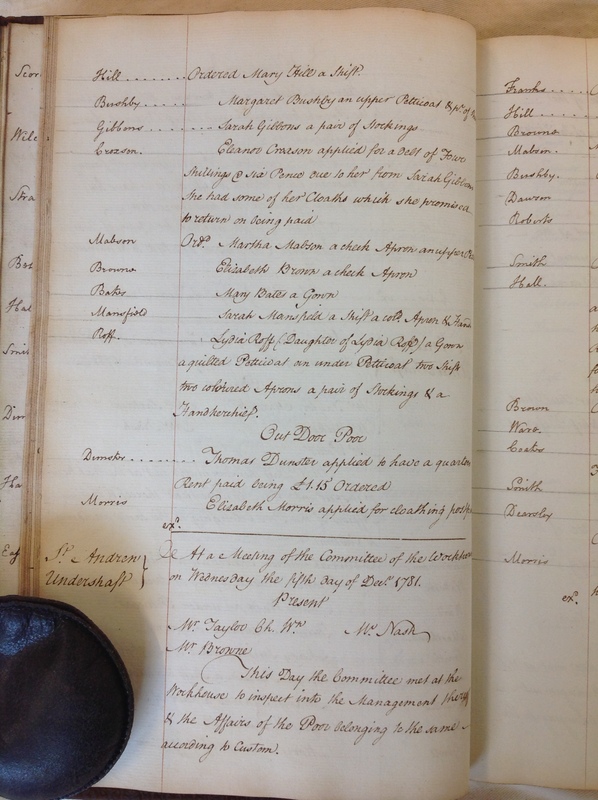 Hill ....... Ordered Mary Hill a Shift.
Bushby ..... Margaret Bushby an upper Petticoat & pr. of
Gibbons ..... Sarah Gibbons a pair of Stockings
Creason. Eleanor Creason applied for a Debt of Four
Shillings & Six Pence due to her from Sarah Gibbons
She had some of her Cloaths which she promised
to return on being paid
Mabson Ordd. Martha Mabson a check Apron an upper
Browne Elizabeth Brown a check Apron
Bates Mary Bates a Gown
Mansfield Sarah Mansfield a Shift a cold. Apron &
Roff. Lydia Roff (Daughter of Lydia Roff) a Gown
a quilted Petticoat an under Petticoat two Shifts
two coloured Aprons a pair of Stockings & a
Handkerchief.
Out Door Poor
Dunster ......... Thomas Dunster applied to have a quarters
Rent paid being £1.15 Ordered
Morris Elizabeth Morris applied for cloathing
exd.
St. Andrew
Undershaft
At a Meeting of the Committee of the Workhouse
on Wednesday the fifth day of Decr. 1781.
Present
Mr. Taylor Ch. Wn. Mr. Nash
Mr Browne
This Day the Committee met at the
Workhouse to inspect into the Management thereof
& the Affairs of the Poor belonging to the same
according to Custom.
Franks ....
Hill ....
Browne
Mabson.
Bushby.
Dawson
Roberts
Smith
Hall.
Brown
Ware.
Coates
Smith
Dearsley
Morris
exd.